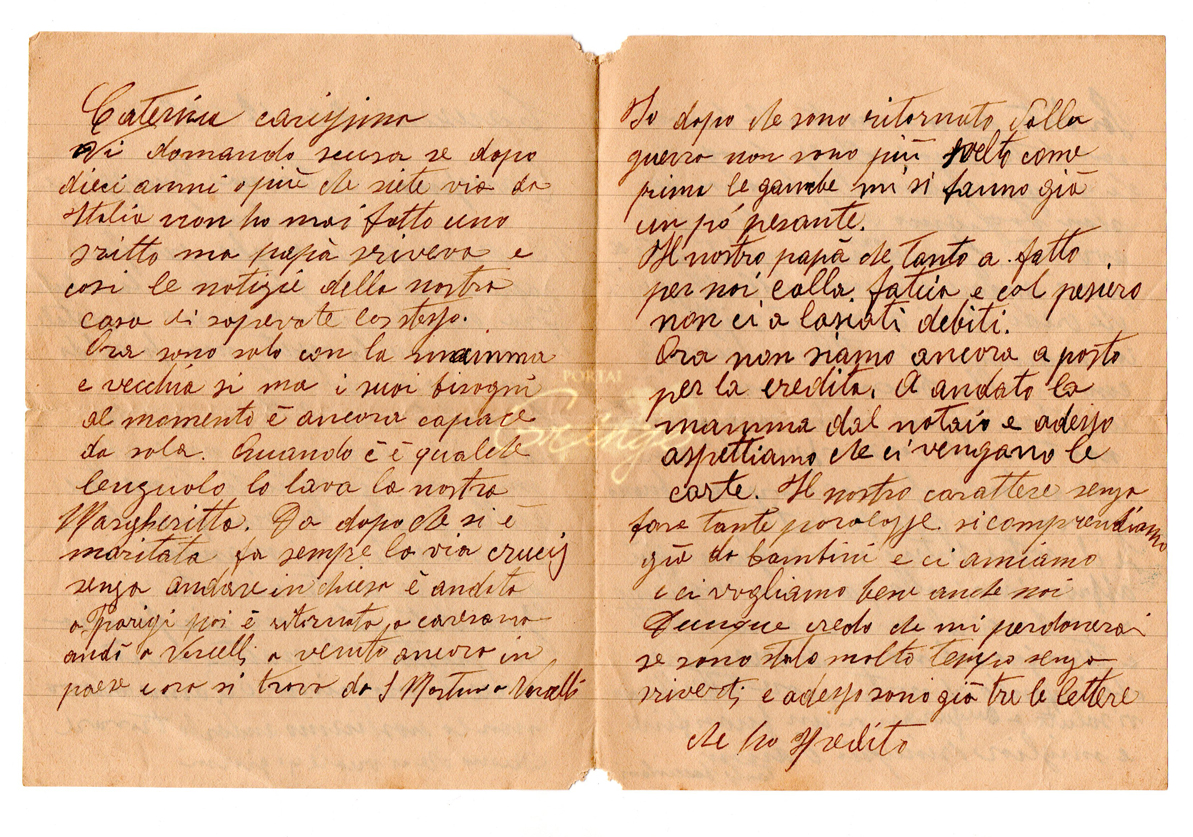 Caterina carissima
Vi domando scusa se dopo
dieci anni o più che siete via da
Italia non ho mai fatto uno
scritto ma papà scriveva e
cosi le notizie della nostra
casa di sapevate lo stesso.
Ora sono solo con la mamma
e vecchia si ma i suoi bisogni
al momento è ancora capace
da sola. Quando c'è qualche
lenzuolo lo lava la nostra
Margheritta. Da dopo che si è
maritata fa sempre la via crucis
senza andare in chiesa è andata
a Parigi poi è ritornata a caresana
andò a Vercelli a venuto ancora in
paese e ora si trova da S Martino Vercelli
Io dopo che sono ritornato dalla
guerra non sono più svelto come
prima le gambe mi si fanno già
un pó pesante.
Il nostro papà che tanto a fatto
per noi colla fatica e col pesiero
non ci a lasciati debiti.
Ora non siamo ancora a posto
per la eredita. A andato la
mamma dal notaio e adesso
aspettiamo che ci vengano le
carte. Il nostro carattere senza
fare tante parolasse si comprendiamo
già da bambini e ci amiamo
e ci vogliamo bene anche noi
Dunque credo che mi perdonerai
se sono stato molto tempo senza
scriverti e adesso sono già tre le lettere
che ho spedito
PORTAL
Gringa